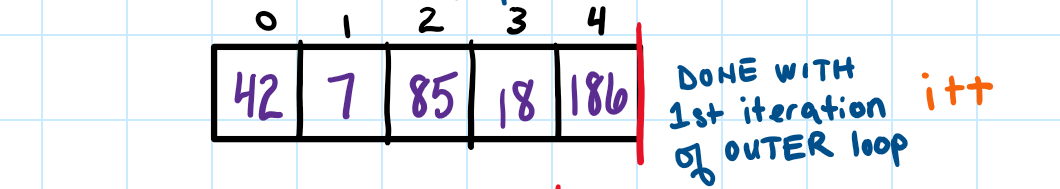 0 1 2 3 4
42 7 85 18 186
DONE WITH
1st iteration
of OUTER loop
i++